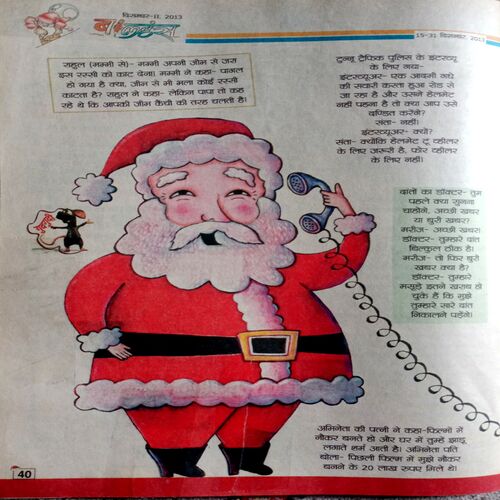 दिसम्बर-II, 2013
15-31 दिसम्बर, 2013
राहुल (मम्मी से)- मम्मी अपनी जीभ से जरा
इस रस्सी को काट देना। मम्मी ने कहा- पागल
हो गया है क्या, जीभ से भी भला कोई रस्सी
काटता है? राहुल ने कहा- लेकिन पापा तो कह
रहे थे कि आपकी जीभ कैंची की तरह चलती है।
टुन्नू ट्रैफिक पुलिस के इंटरव्यू
के लिए गया-
इंटरव्यूअर- एक आदमी गधे
की सवारी करता हुआ रोड से
जा रहा है और उसने हेलमेट
नहीं पहना है तो क्या आप उसे
दण्डित करेंगे?
संता- नहीं।
इंटरव्यूअर- क्यों?
संता- क्योंकि हेलमेट टू व्हीलर
के लिए जरूरी है, फोर व्हीलर
के लिए नहीं।
दांतों का डॉक्टर- तुम
पहले क्या सुनना
चाहोगे, अच्छी खबर
या बुरी खबर?
मरीज- अच्छी खबर।
डॉक्टर- तुम्हारे दांत
बिल्कुल ठीक हैं।
मरीज- तो फिर बुरी
खबर क्या है?
डॉक्टर- तुम्हारे
मसूड़े इतने खराब हो
चुके हैं कि मुझे
तुम्हारे सारे दांत
निकालने पड़ेंगे।
अभिनेता की पत्नी ने कहा-फिल्मों में
नौकर बनते हो और घर में तुम्हें झाड़ू
लगाते शर्म आती है। अभिनेता पति
बोला- पिछली फिल्म में मुझे नौकर
बनने के 20 लाख रुपए मिले थे।
40